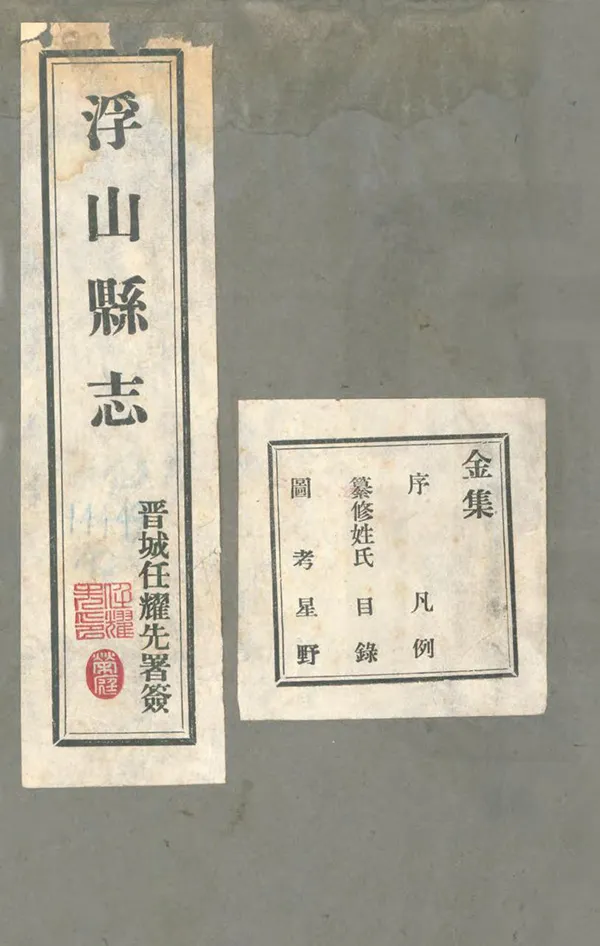 浮山縣志
晋城任耀先署簽
金集
序 凡例
纂修姓氏 目錄
圖考 星野